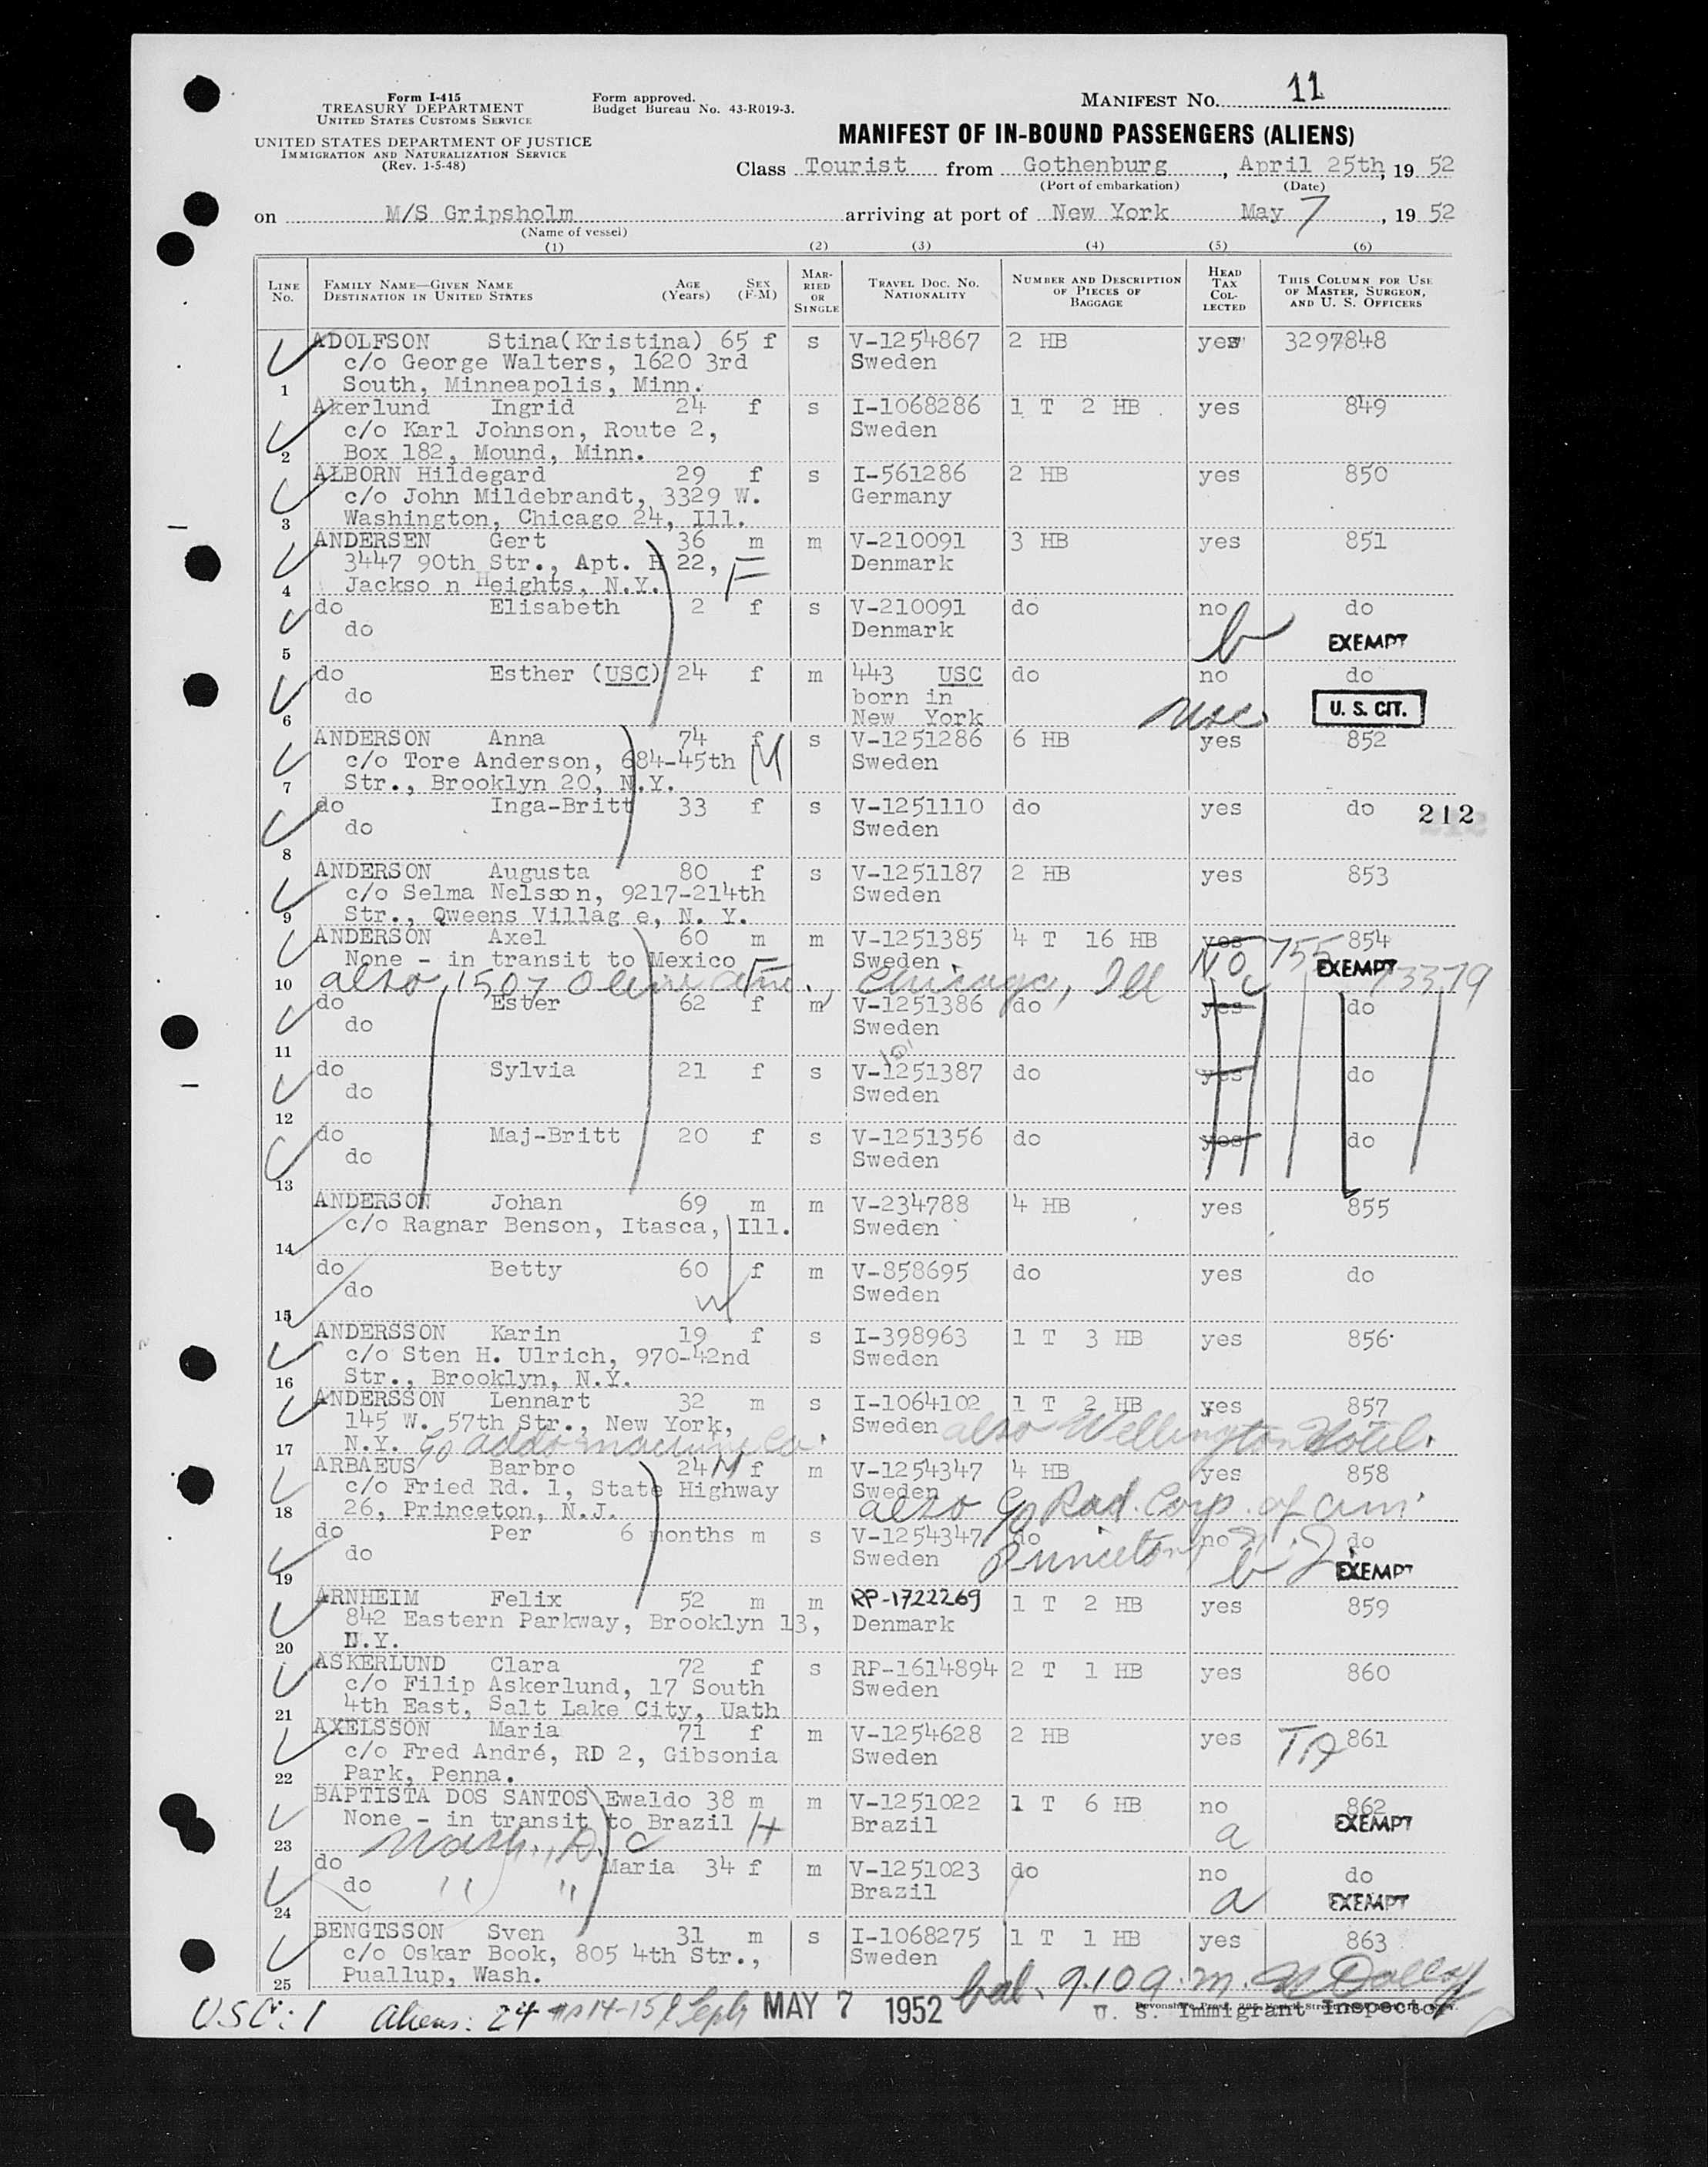 Form I-415
TREASURY DEPARTMENT
UNITED STATES CUSTOMS SERVICE
UNITED STATES DEPARTMENT OF JUSTICE
IMMIGRATION AND NATURALIZATION SERVICE
(Rev. 1-5-48)
Form approved.
Budget Bureau No. 43-R019-3.
MANIFEST No. 11
MANIFEST OF IN-BOUND PASSENGERS (ALIENS)
Class Tourist from Gothenburg, April 25th, 19 52
(Port of embarkation) (Date)
on M/S Gripsholm arriving at port of New York May 7, 19 52
(Name of vessel)
(1) (2) (3) (4) (5) (6)
LINE No. FAMILY NAME—GIVEN NAME DESTINATION IN UNITED STATES AGE (Years) SEX (F-M) MARRIED OR SINGLE TRAVEL DOC. NO. NATIONALITY NUMBER AND DESCRIPTION OF PIECES OF BAGGAGE HEAD TAX COLLECTED THIS COLUMN FOR USE OF MASTER, SURGEON, AND U. S. OFFICERS
ADOLFSON Stina(Kristina) 65 f s V-1254867 2 HB yes 3297848
c/o George Walters, 1620 3rd Sweden
1 South, Minneapolis, Minn.
Akerlund Ingrid 24 f s I-1068286 1 T 2 HB yes 849
c/o Karl Johnson, Route 2, Sweden
2 Box 182, Mound, Minn.
ALBORN Hildegard 29 f s I-561286 2 HB yes 850
c/o John Mildebrandt, 3329 W. Germany
3 Washington, Chicago 24, Ill.
ANDERSEN Gert 36 m m V-210091 3 HB yes 851
3447 90th Str., Apt. H 22, F Denmark
4 Jackso n Heights, N.Y.
do Elisabeth 2 f s V-210091 do no do
do Denmark b EXEMPT
5
do Esther (USC) 24 f m 443 USC do no do
do born in usc U. S. CIT.
6 New York
ANDERSON Anna 74 f s V-1251286 6 HB yes 852
c/o Tore Anderson, 684-45th M Sweden
7 Str., Brooklyn 20, N.Y.
do Inga-Britt 33 f s V-1251110 do yes do 212
do Sweden
8
ANDERSON Augusta 80 f s V-1251187 2 HB yes 853
c/o Selma Nelsson, 9217-214th Sweden
9 Str., Qweens Villag e, N. Y.
ANDERSON Axel 60 m m V-1251385 4 T 16 HB yes 854
None - in transit to Mexico F Sweden NO 755 EXEMPT 73379
10 also 1507 Olive Ave., Chicago, Ill c
do Ester 62 f m V-1251386 do yes do
do Sweden
11
do Sylvia 21 f s V-1251387 do yes do
do Sweden
12
do Maj-Britt 20 f s V-1251356 do yes do
do Sweden
13
ANDERSON Johan 69 m m V-234788 4 HB yes 855
c/o Ragnar Benson, Itasca, Ill. Sweden
14
do Betty 60 f m V-858695 do yes do
do W Sweden
15
ANDERSSON Karin 19 f s I-398963 1 T 3 HB yes 856
c/o Sten H. Ulrich, 970-42nd Sweden
16 Str., Brooklyn, N.Y.
ANDERSSON Lennart 32 m s I-1064102 1 T 2 HB yes 857
145 W. 57th Str., New York, Sweden also Wellington Hotel.
17 N.Y. c/o addo machine Co.
ARBAEUS Barbro 24 M f m V-1254347 4 HB yes 858
c/o Fried Rd. 1, State Highway Sweden
18 26, Princeton, N.J. also c/o Rad. Corp. of Am.
do Per 6 months m s V-1254347 do no do
do Sweden Princeton, N.J. b EXEMPT
19
ARNHEIM Felix 52 m m RP-1722269 1 T 2 HB yes 859
842 Eastern Parkway, Brooklyn 13, Denmark
20 N.Y.
ASKERLUND Clara 72 f s RP-1614894 2 T 1 HB yes 860
c/o Filip Askerlund, 17 South Sweden
21 4th East, Salt Lake City, Uath
AXELSSON Maria 71 f m V-1254628 2 HB yes 861
c/o Fred André, RD 2, Gibsonia Sweden
22 Park, Penna.
BAPTISTA DOS SANTOS Ewaldo 38 m m V-1251022 1 T 6 HB no 862
None - in transit to Brazil H Brazil a EXEMPT
23 Wash., D. C
do Maria 34 f m V-1251023 do no do
do " " Brazil a EXEMPT
24
BENGTSSON Sven 31 m s I-1068275 1 T 1 HB yes 863
c/o Oskar Book, 805 4th Str., Sweden
25 Puallup, Wash.
USC: 1 Aliens: 24 MAY 7 1952 9.10 a.m.
U. S. Immigrant Inspector